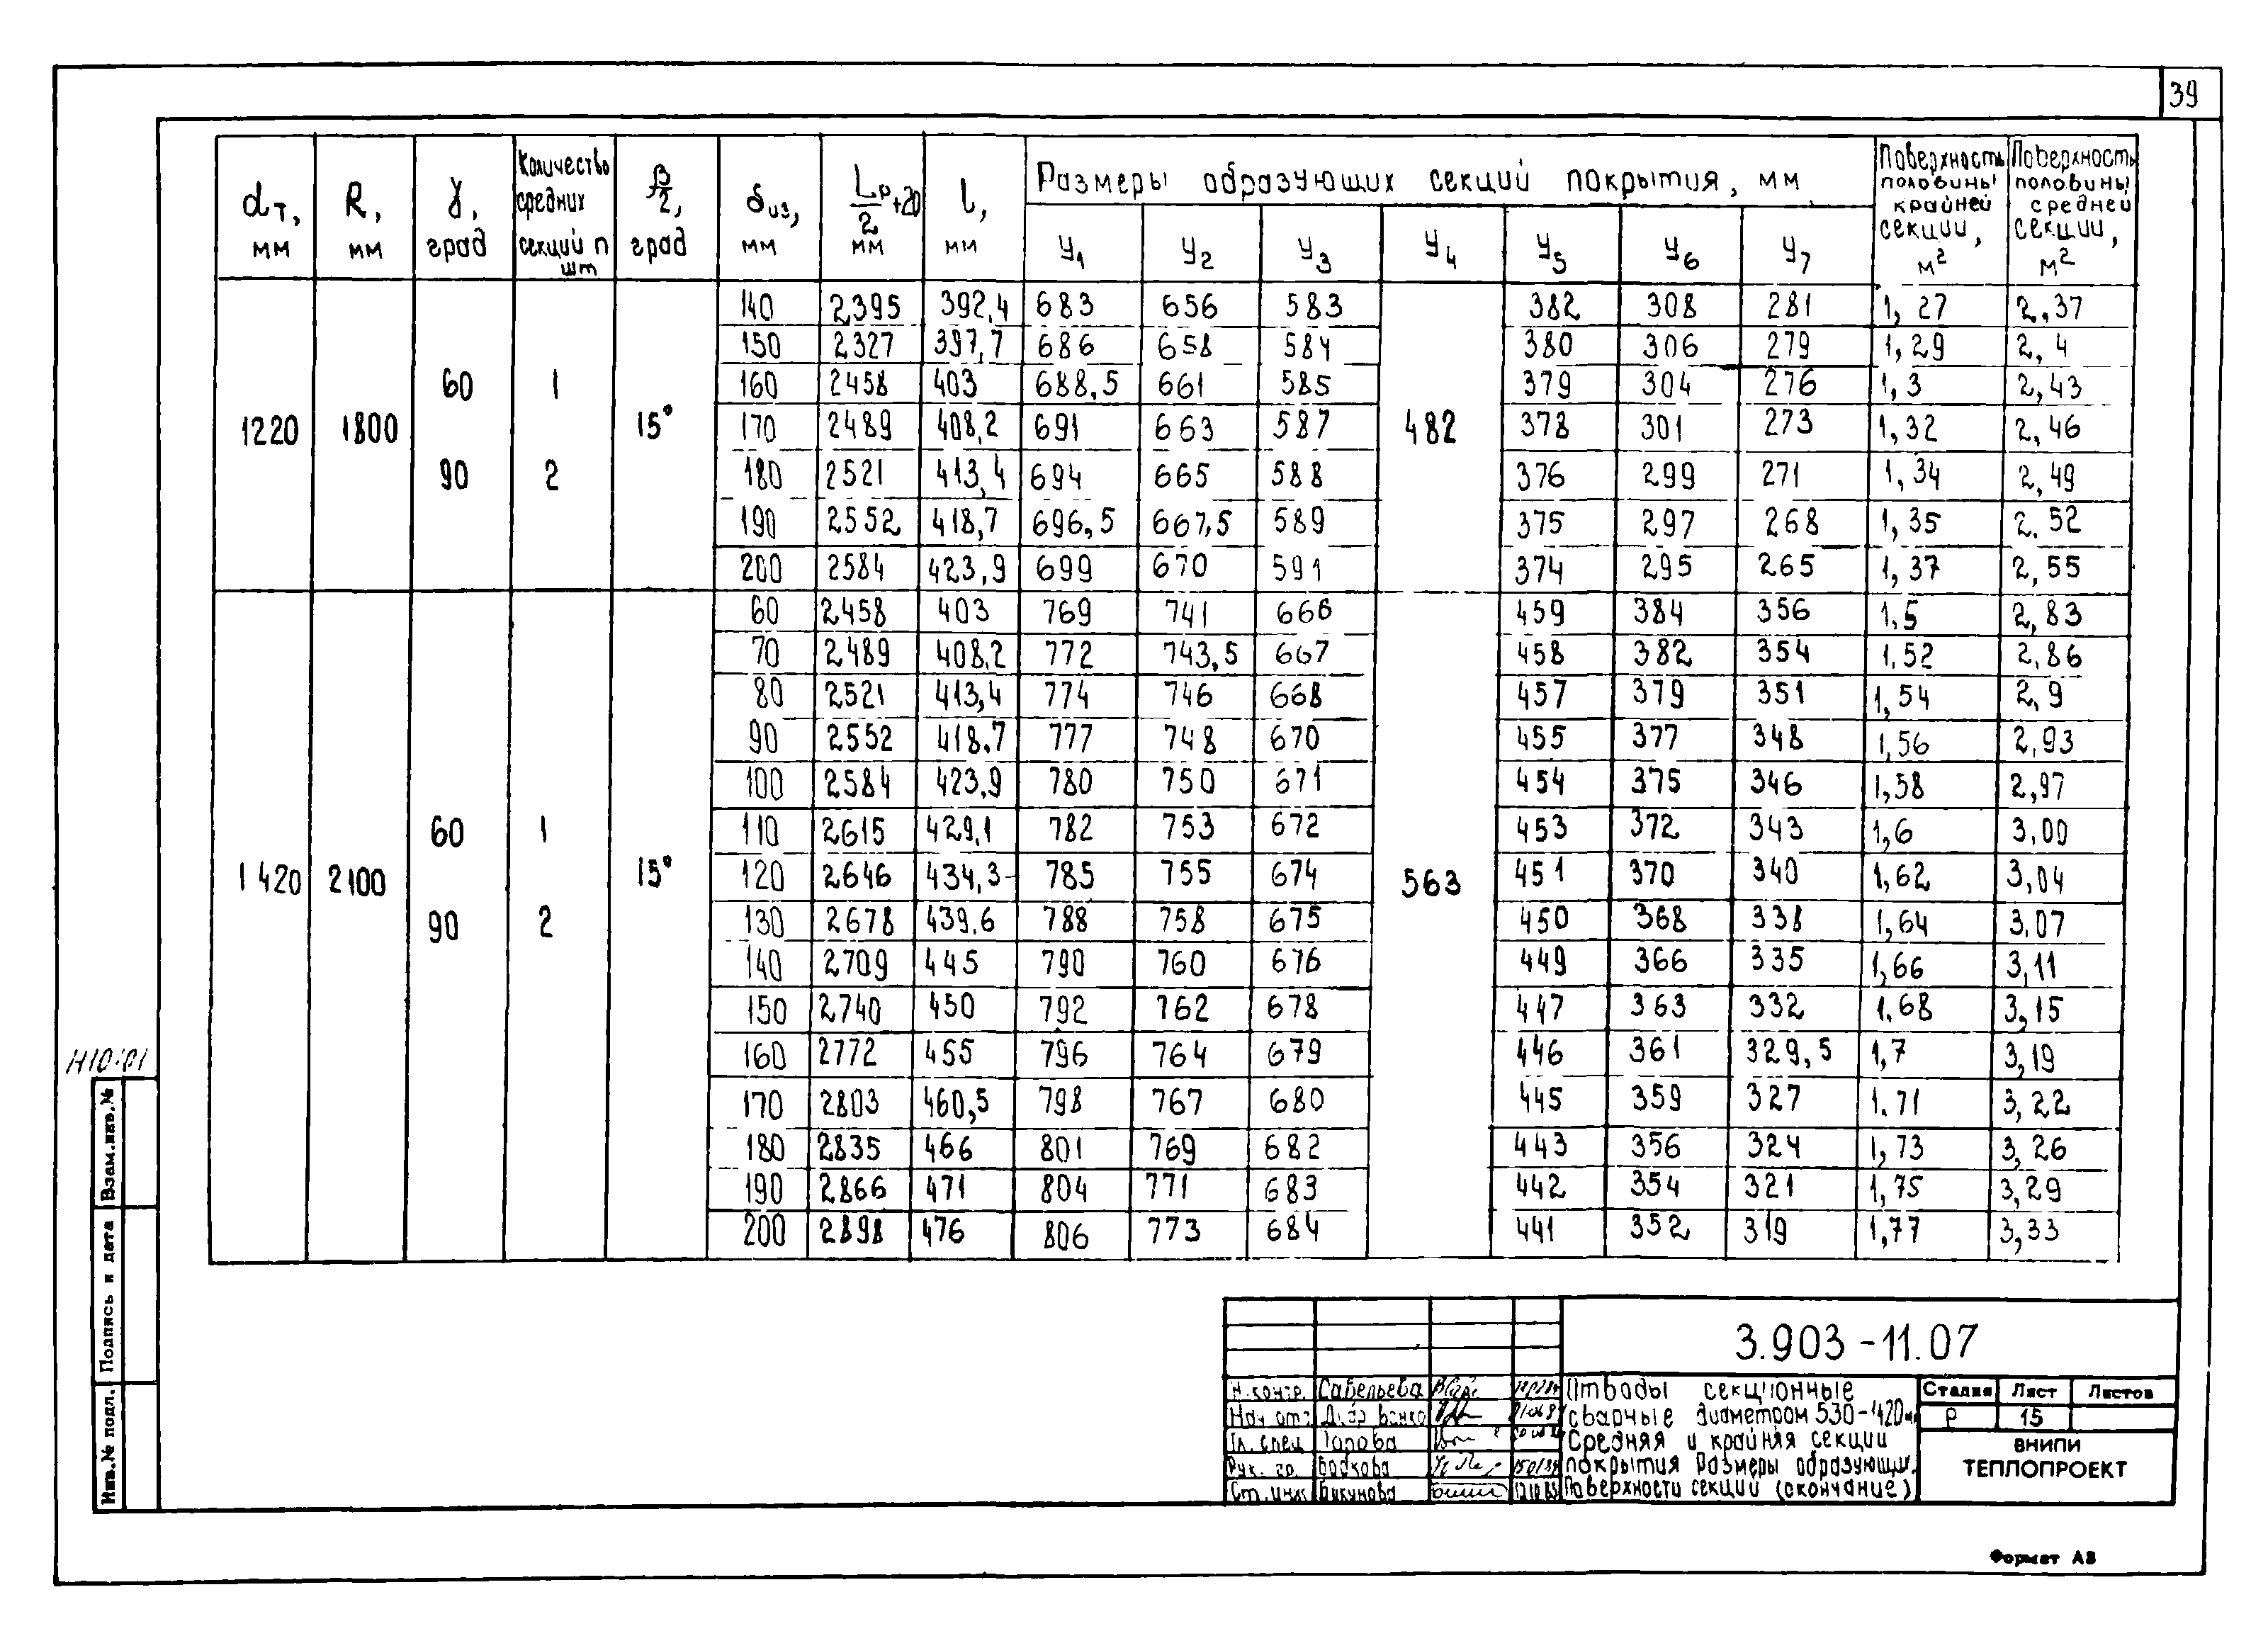 39
dт, мм | R, мм | γ, град | Количество средних секций n шт | β/2, град | δиз, мм | Lр/2 +20 мм | l, мм | Размеры образующих секций покрытия, мм | Поверхность половины крайней секции, м² | Поверхность половины средней секции, м²
У1 | У2 | У3 | У4 | У5 | У6 | У7
1220 | 1800 | 60 | 1 | 15°
90 | 2
482
140 | 2395 | 392,4 | 683 | 656 | 583 | 382 | 308 | 281 | 1,27 | 2,37
150 | 2327 | 397,7 | 686 | 658 | 584 | 380 | 306 | 279 | 1,29 | 2,4
160 | 2458 | 403 | 688,5 | 661 | 585 | 379 | 304 | 276 | 1,3 | 2,43
170 | 2489 | 408,2 | 691 | 663 | 587 | 378 | 301 | 273 | 1,32 | 2,46
180 | 2521 | 413,4 | 694 | 665 | 588 | 376 | 299 | 271 | 1,34 | 2,49
190 | 2552 | 418,7 | 696,5 | 667,5 | 589 | 375 | 297 | 268 | 1,35 | 2.52
200 | 2584 | 423,9 | 699 | 670 | 591 | 374 | 295 | 265 | 1,37 | 2,55
1420 | 2100 | 60 | 1 | 15°
90 | 2
563
60 | 2458 | 403 | 769 | 741 | 666 | 459 | 384 | 356 | 1,5 | 2,83
70 | 2489 | 408,2 | 772 | 743,5 | 667 | 458 | 382 | 354 | 1,52 | 2,86
80 | 2521 | 413,4 | 774 | 746 | 668 | 457 | 379 | 351 | 1,54 | 2,9
90 | 2552 | 418.7 | 777 | 748 | 670 | 455 | 377 | 348 | 1,56 | 2,93
100 | 2584 | 423,9 | 780 | 750 | 671 | 454 | 375 | 346 | 1,58 | 2,97
110 | 2615 | 429,1 | 782 | 753 | 672 | 453 | 372 | 343 | 1,6 | 3,00
120 | 2646 | 434,3 | 785 | 755 | 674 | 451 | 370 | 340 | 1,62 | 3,04
130 | 2678 | 439.6 | 788 | 758 | 675 | 450 | 368 | 338 | 1,64 | 3,07
140 | 2709 | 445 | 790 | 760 | 676 | 449 | 366 | 335 | 1,66 | 3,11
150 | 2740 | 450 | 792 | 762 | 678 | 447 | 363 | 332 | 1.68 | 3,15
160 | 2772 | 455 | 796 | 764 | 679 | 446 | 361 | 329,5 | 1,7 | 3,19
170 | 2803 | 460,5 | 798 | 767 | 680 | 445 | 359 | 327 | 1.71 | 3,22
180 | 2835 | 466 | 801 | 769 | 682 | 443 | 356 | 324 | 1,73 | 3,26
190 | 2866 | 471 | 804 | 771 | 683 | 442 | 354 | 321 | 1,75 | 3,29
200 | 2898 | 476 | 806 | 773 | 684 | 441 | 352 | 319 | 1,77 | 3,33
Взам.инв.№
Подпись и дата
Инв.№ подл.
3.903-11.07
Н.контр. Савельева
Нач отг
Гл. спец
Рук. гр.
Ст. инж
Отводы секционные
сварные диаметром 530-1420
Средняя и крайняя секции
покрытия Размеры образующих.
Поверхности секции (окончание)
Стадия | Лист | Листов
Р | 15
ВНИПИ
ТЕПЛОПРОЕКТ
Формат А3